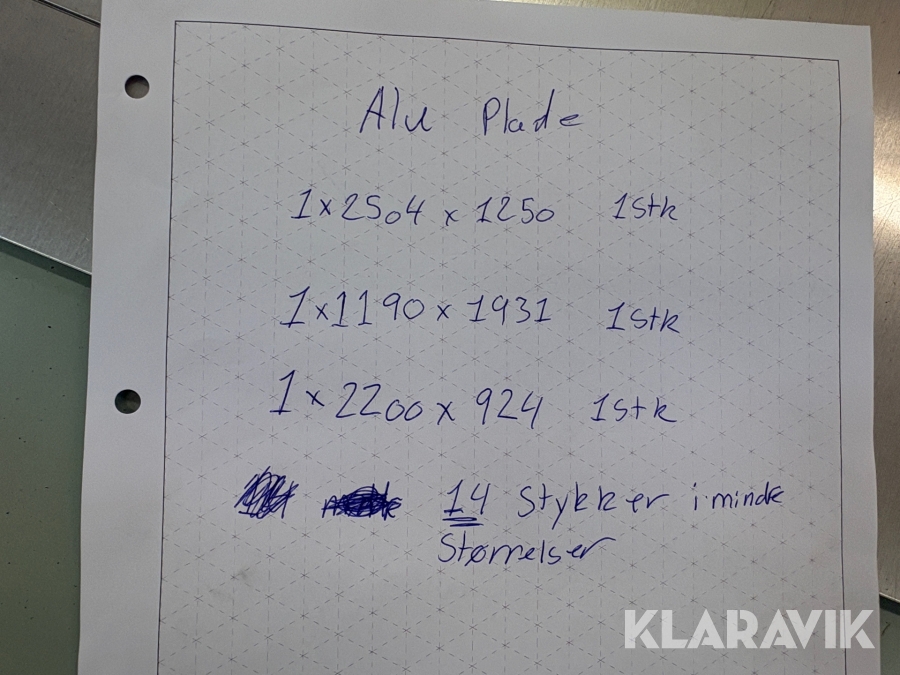 Alu Plade
1x2504 x 1250 1stk
1x1190 x 1931 1stk
1x2200 x 924 1stk
14 Stykker i mindre
Størrelser
KLARAVIK